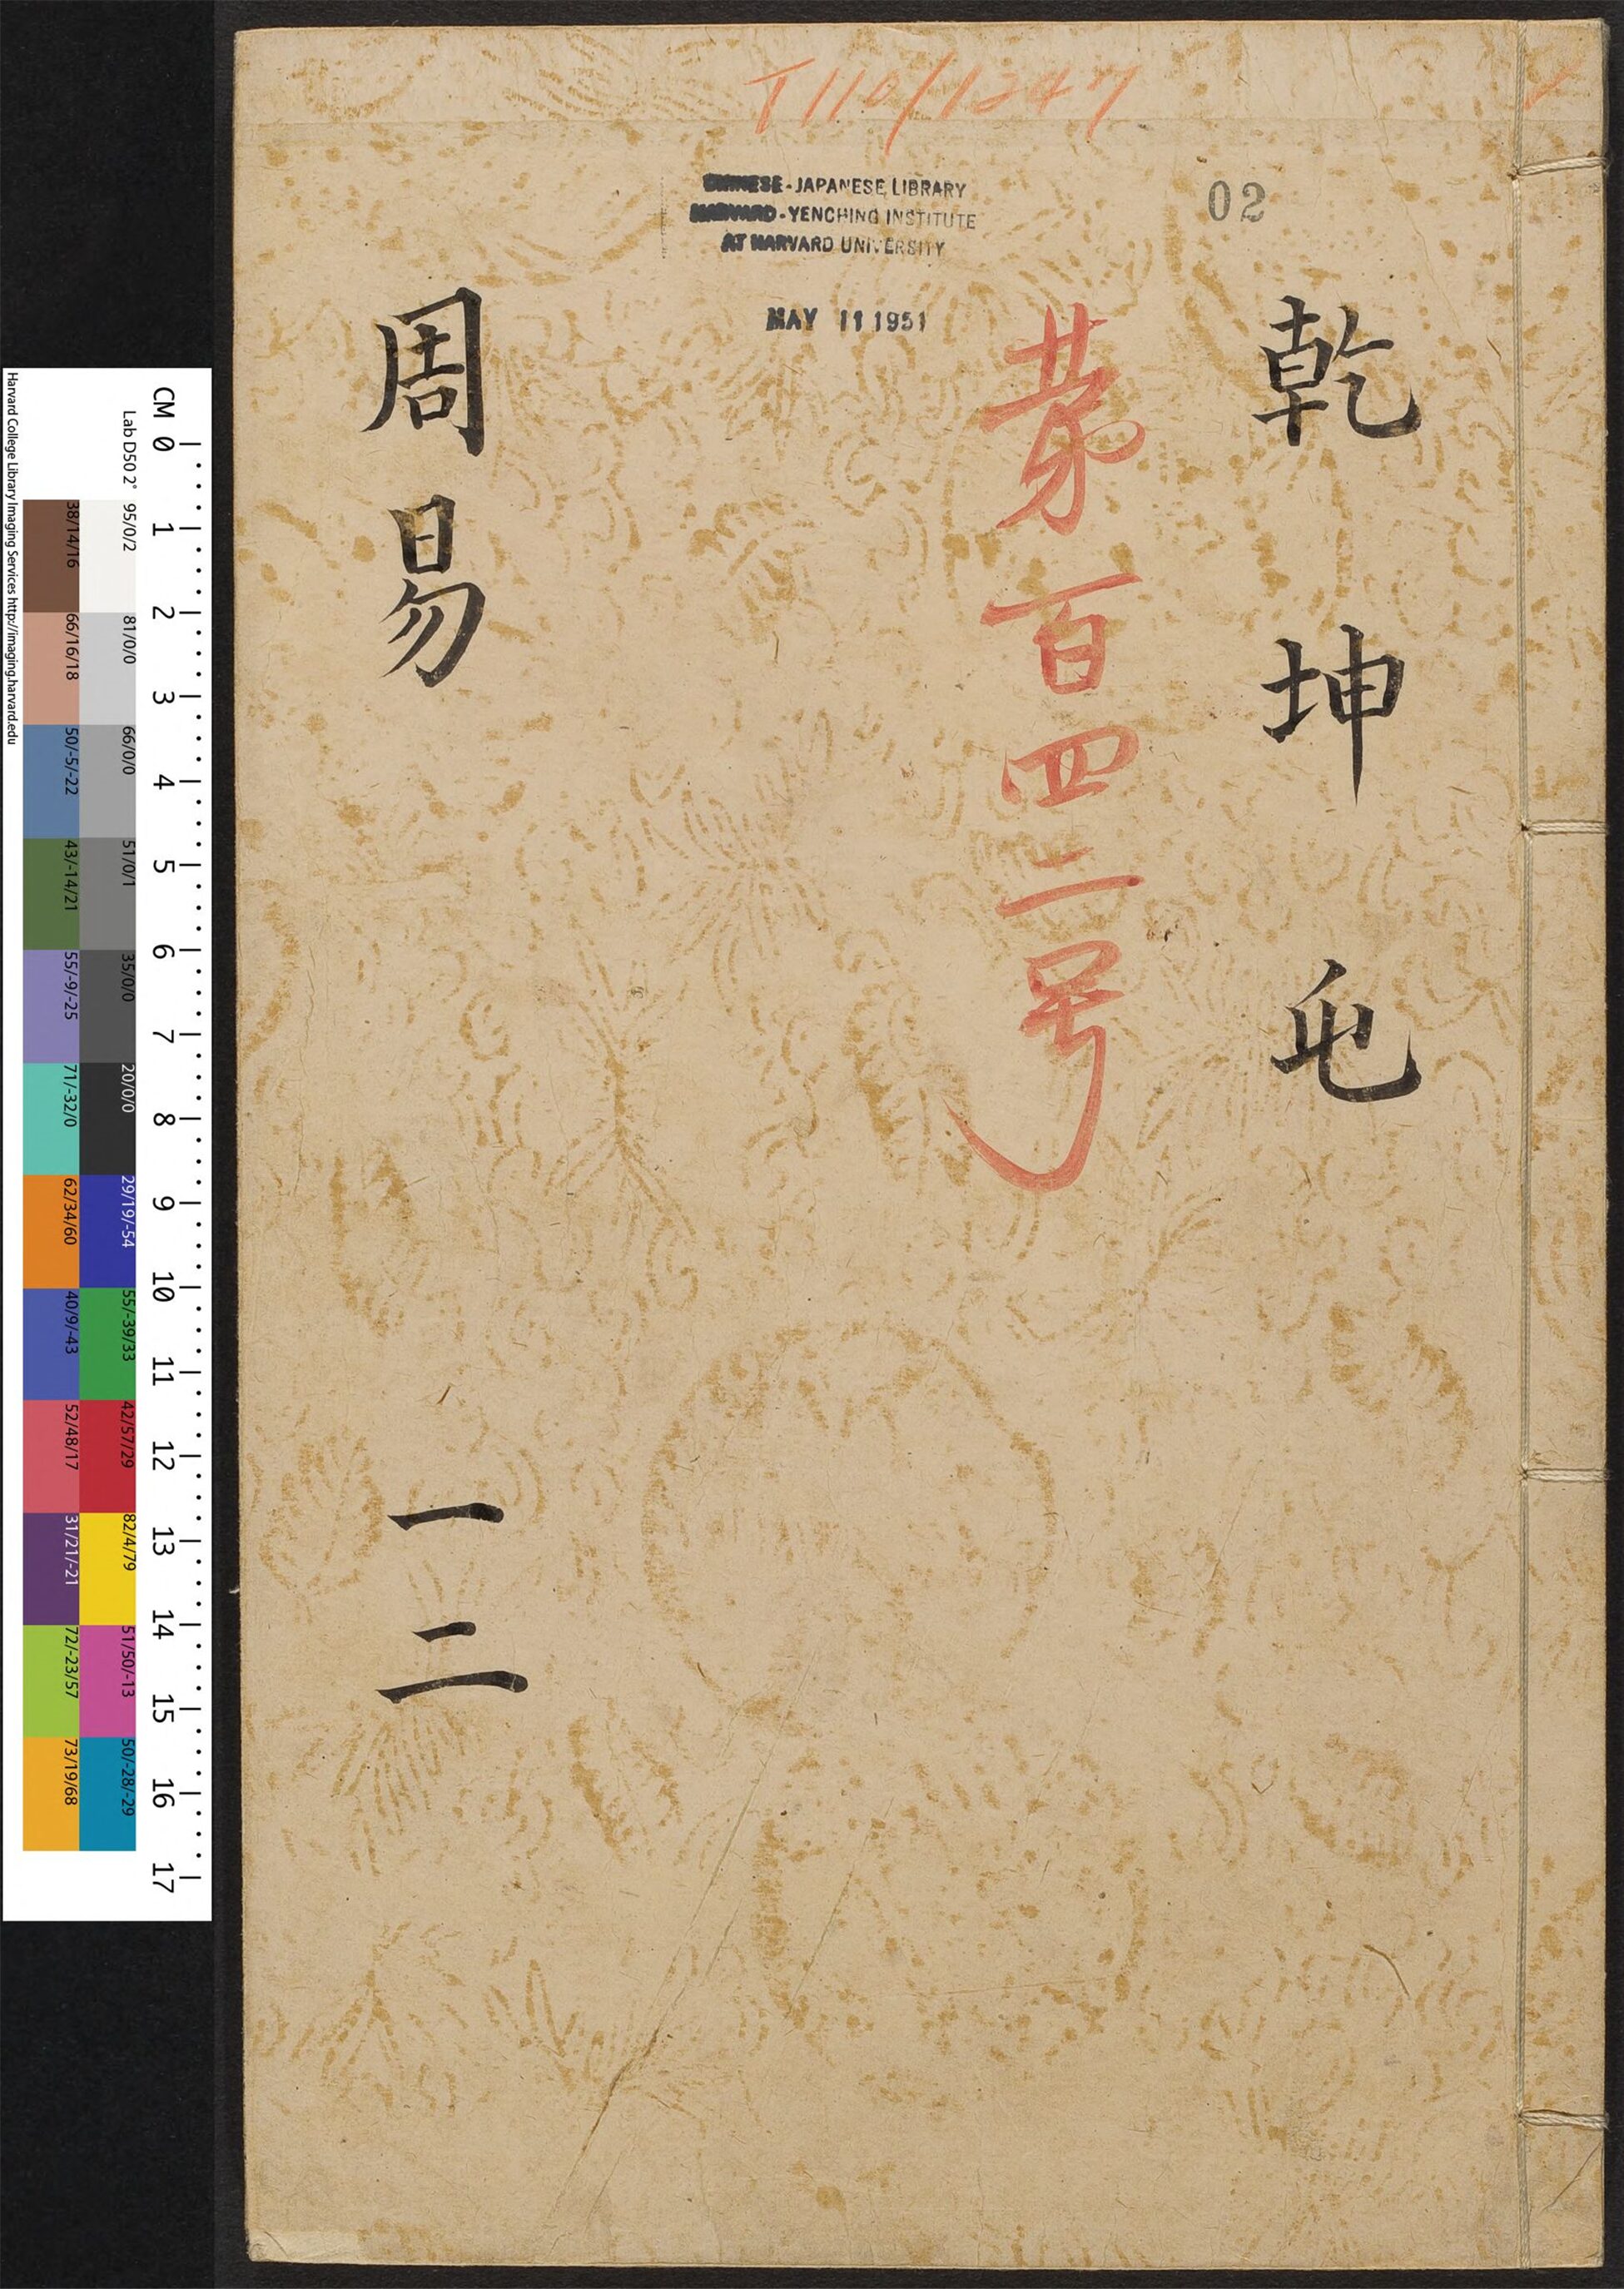 T110/1247
CHINESE-JAPANESE LIBRARY
HARVARD-YENCHING INSTITUTE
AT HARVARD UNIVERSITY
MAY 11 1951
02
乾 坤 屯
第百四二号
周易 一二
CM 0 1 2 3 4 5 6 7 8 9 10 11 12 13 14 15 16 17
Lab D50 2°
95/0/2
81/0/0
66/0/0
51/0/1
35/0/0
20/0/0
29/19/-54
55/-39/33
42/57/29
82/4/79
51/50/-13
50/-28/-29
38/14/16
66/16/18
50/-5/-22
43/-14/21
55/-9/-25
71/-32/0
62/34/60
40/9/-43
52/48/17
31/21/-21
72/-23/57
73/19/68
Harvard College Library Imaging Services http://imaging.harvard.edu